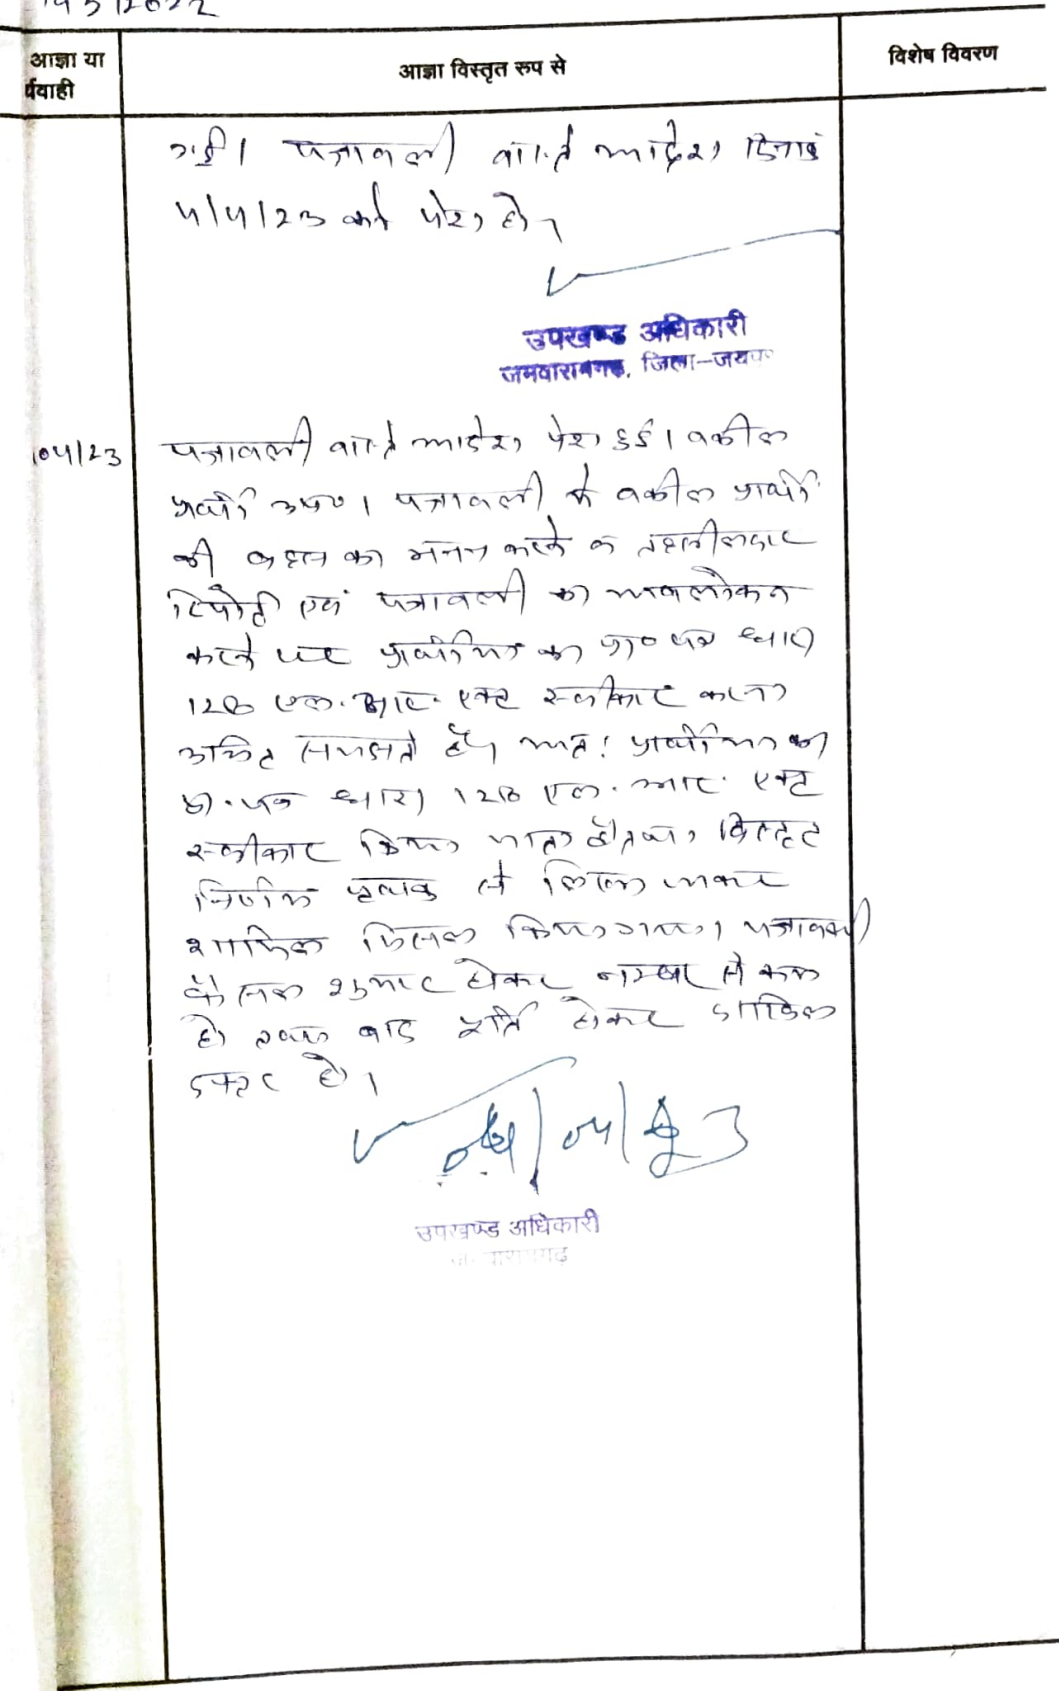 आज्ञा या
र्यवाही
आज्ञा विस्तृत रूप से
विशेष विवरण
गई। पत्रावली वास्ते आदेश दिनांक
4/4/23 को पेश हो।
उपखण्ड अधिकारी
जमवारामगढ, जिला-जयपुर
04/23
पत्रावली वास्ते आदेश पेश हुई। वकील
प्रार्थी उप०। पत्रावली में वकील प्रार्थी
की बहस का मनन करने व तहसीलदार
रिपोर्ट एवं पत्रावली का अवलोकन
करने पर प्रार्थीगण का प्रा० पत्र धारा
128 एल.आर. एक्ट स्वीकार करना
उचित समझते हैं। अतः प्रार्थीगण का
प्रा. पत्र धारा 128 एल. आर. एक्ट
स्वीकार किया जाता है तथा विस्तृत
निर्णय पृथक से लिखा जाकर
शामिल मिसल किया गया। पत्रावली
फैसल शुमार होकर नम्बर से कम
हो बाद पूर्ति होकर दाखिल
दफ्तर हो।
उपखण्ड अधिकारी